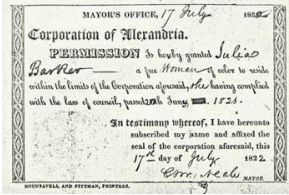 MAYOR'S OFFICE, 17 July 182
Corporation of Alexandria.
PERMISSION Is hereby granted Julia
Barker — a free Woman of color to reside
within the limits of the Corporation aforesaid, she having complied
with the law of council, passed June 1821.
In testimony whereof, I have hereunto
subscribed my name and affixed the
seal of the corporation aforesaid, this
17th day of July 1822
Neale
MAYOR.
ROUNSAVELL, AND PITTMAN, PRINTERS.